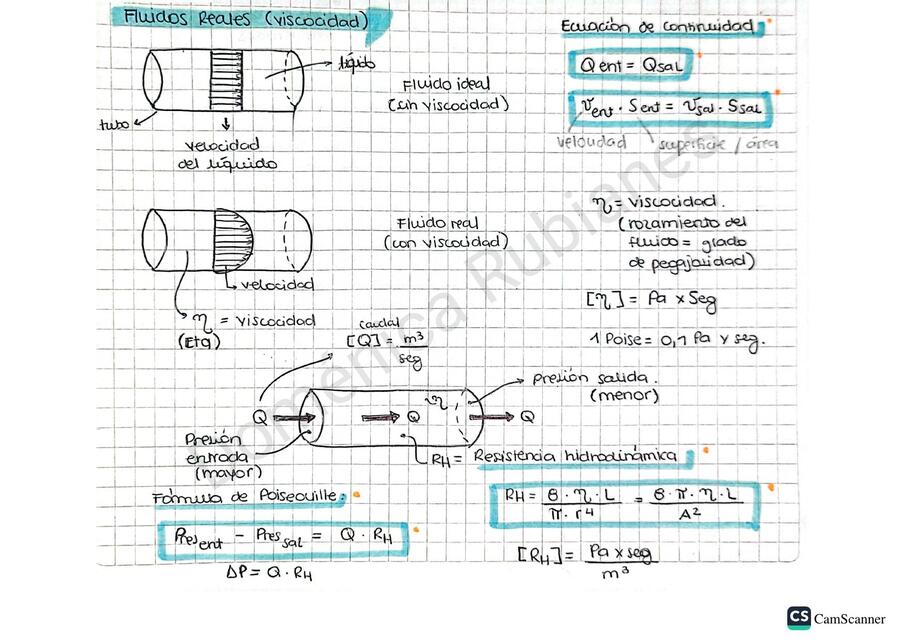 Fluidos Reales (viscocidad)
líquido
Fluido ideal
(sin viscocidad)
tubo
velocidad
del líquido
Ecuación de continuidad
Qent = Qsal
Vent · Sent = Vsal · Ssal
velocidad
superficie / área
Fluido real
(con viscocidad)
velocidad
η = viscocidad
(Eta)
η = viscocidad.
(rozamiento del
fluido = grado
de pegajosidad)
[η] = Pa x Seg
1 Poise = 0,1 Pa x seg.
caudal
[Q] = m³
seg
Presión salida.
(menor)
η
Q
Q
Q
Presión
entrada
(mayor)
RH = Resistencia hidrodinámica
Fórmula de Poiseouille:
Present - Pressal = Q · RH
ΔP = Q · RH
RH = 8 · η · L / π · r⁴ = 8 · π · η · L / A²
[RH] = Pa x seg / m³
Domenica Rubianes
CS CamScanner